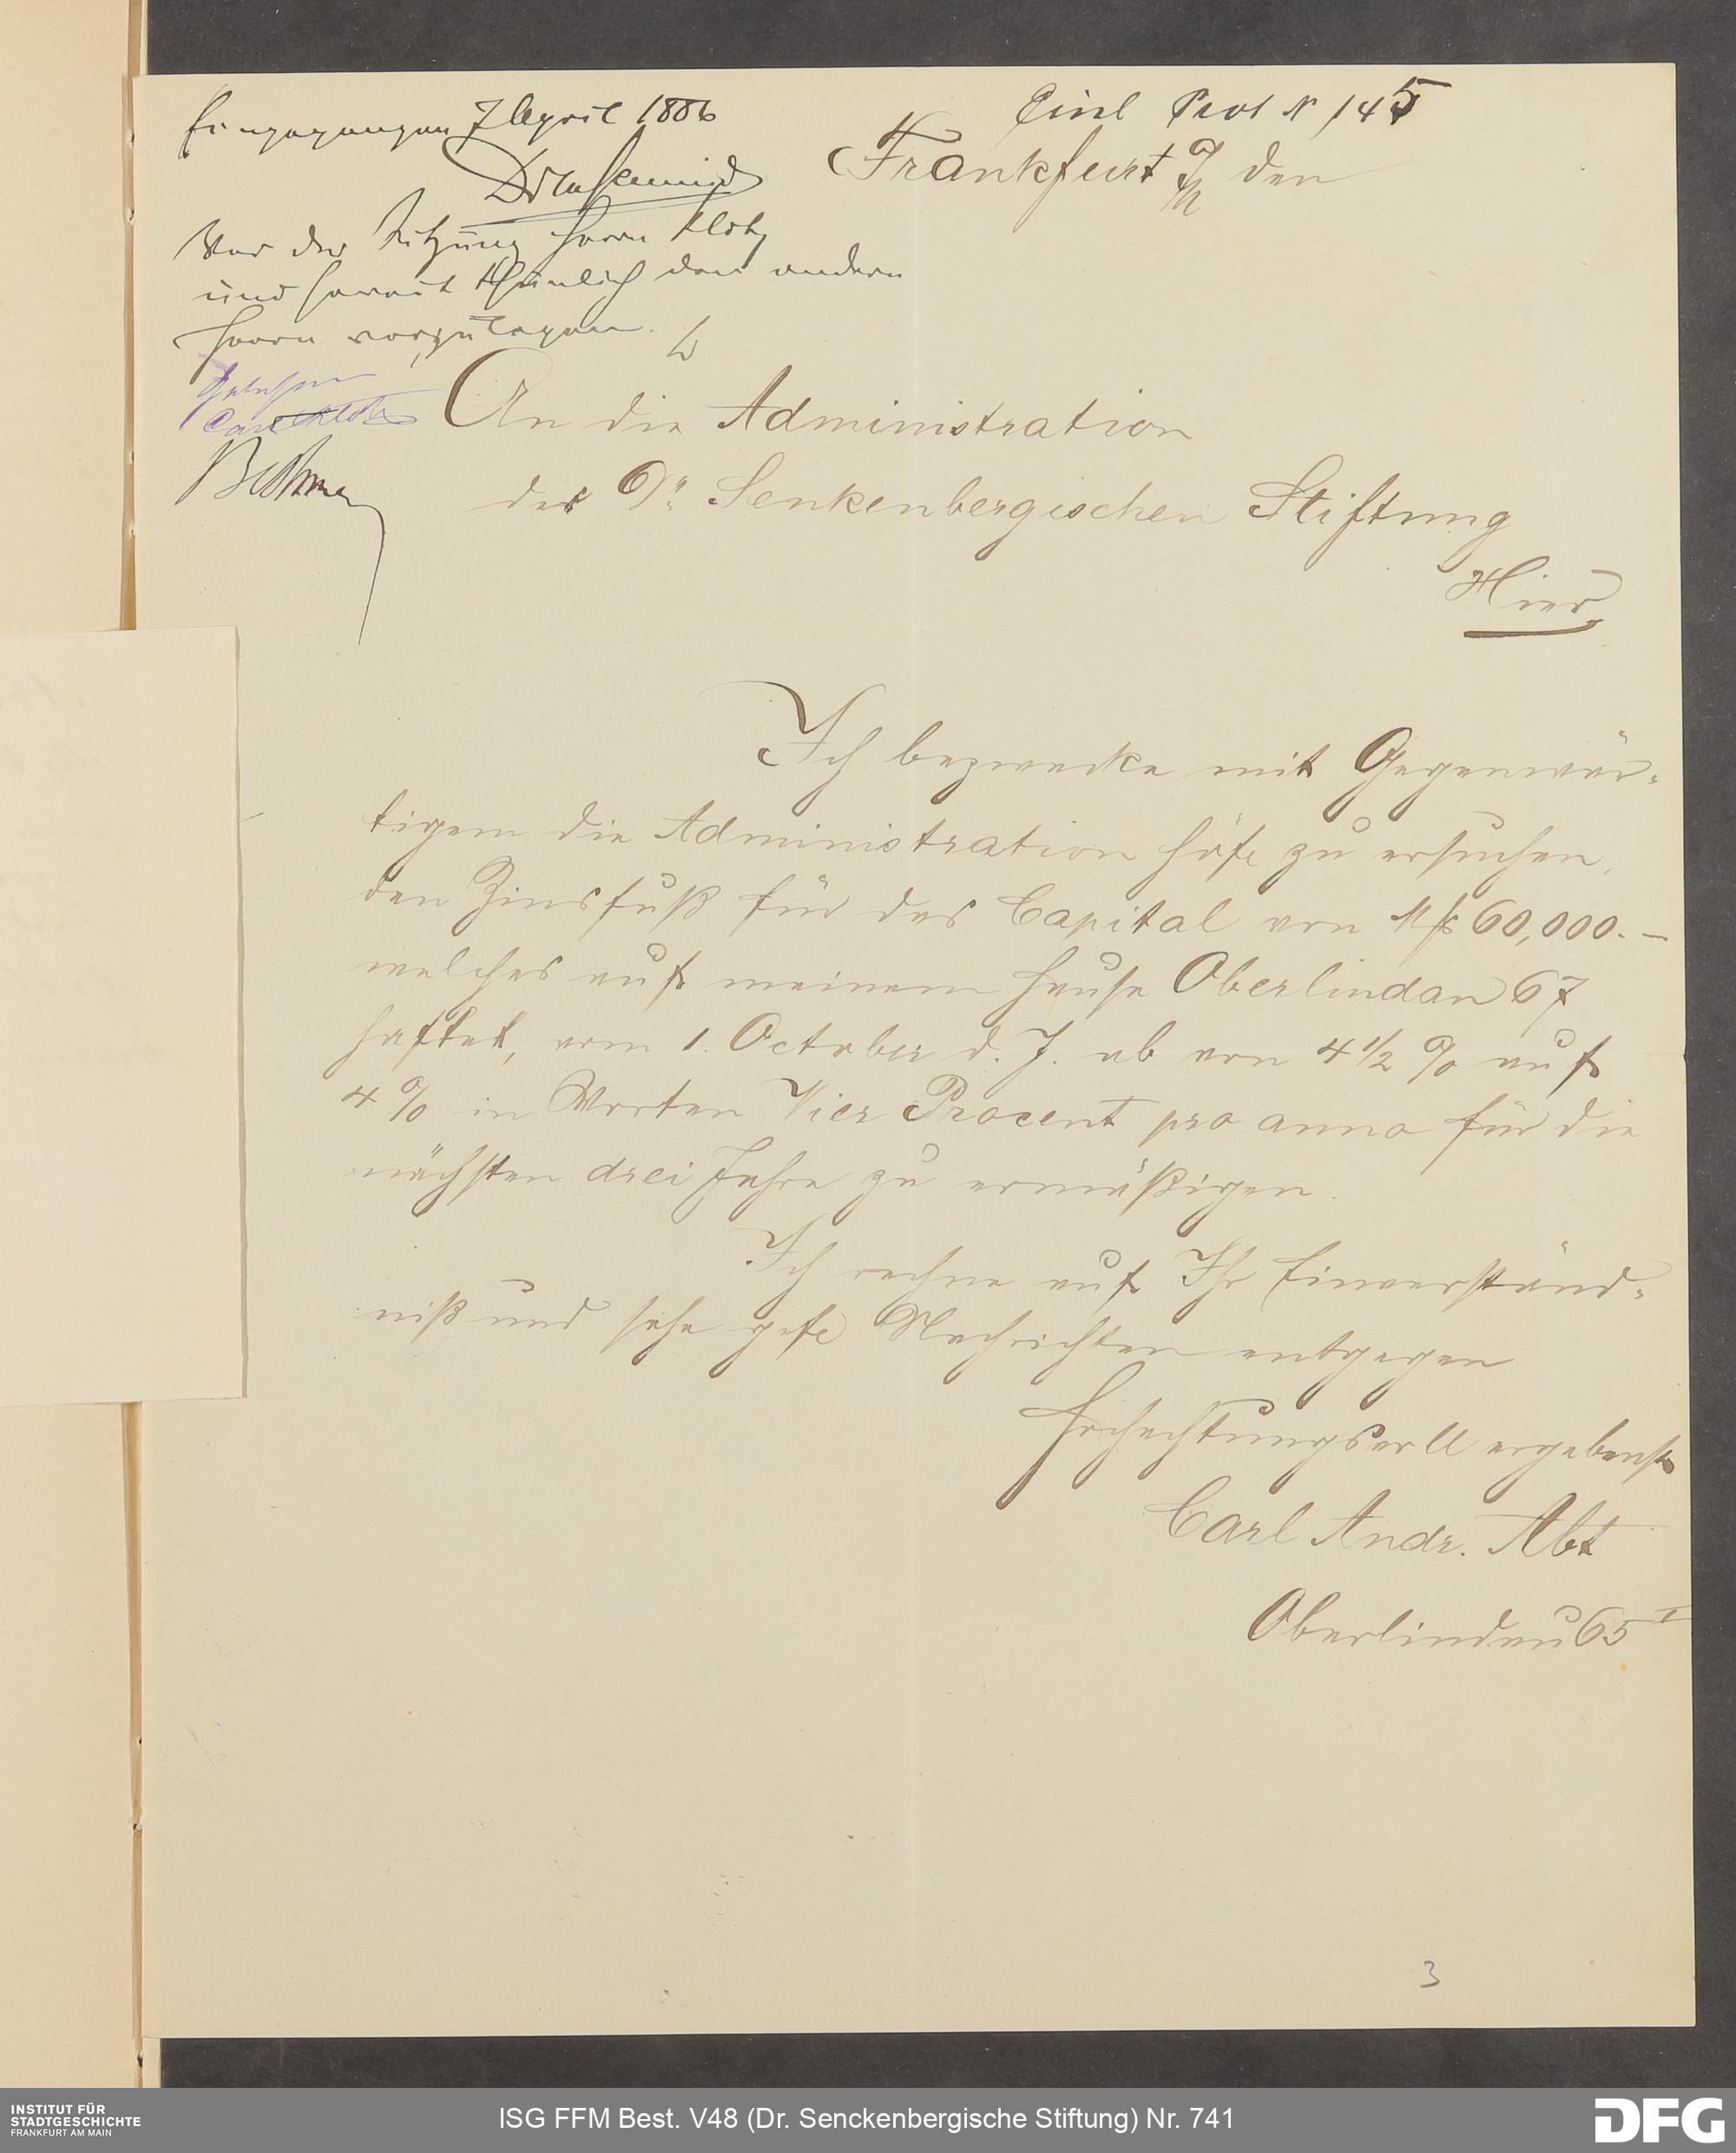 Eingegangen 7 April 1886
Einl Prot N 145
Frankfurt a/M den
Vor der Sitzung Herrn Klotz
und soweit thunlich den andern
Herrn vorzulegen.
Gesehen
Carl Klotz
An die Administration
der Dr. Senkenbergischen Stiftung
Hier
Ich bezwecke mit Gegenwär-
tigem die Administration höfl. zu ersuchen,
den Zinsfuß für das Capital von Mk 60,000.–
welches auf meinem Hause Oberlindau 67
haftet, vom 1. October d. J. ab von 4 1/2 % auf
4 % in Worten Vier Procent pro anno für die
nächsten drei Jahre zu ermäßigen.
Ich rechne auf Ihr Einverständ-
niß und sehe gefl Nachrichten entgegen
Hochachtungsvoll ergebenst
Carl Andr. Abt
Oberlindau 65 I
3
INSTITUT FÜR
STADTGESCHICHTE
FRANKFURT AM MAIN
ISG FFM Best. V48 (Dr. Senckenbergische Stiftung) Nr. 741
DFG